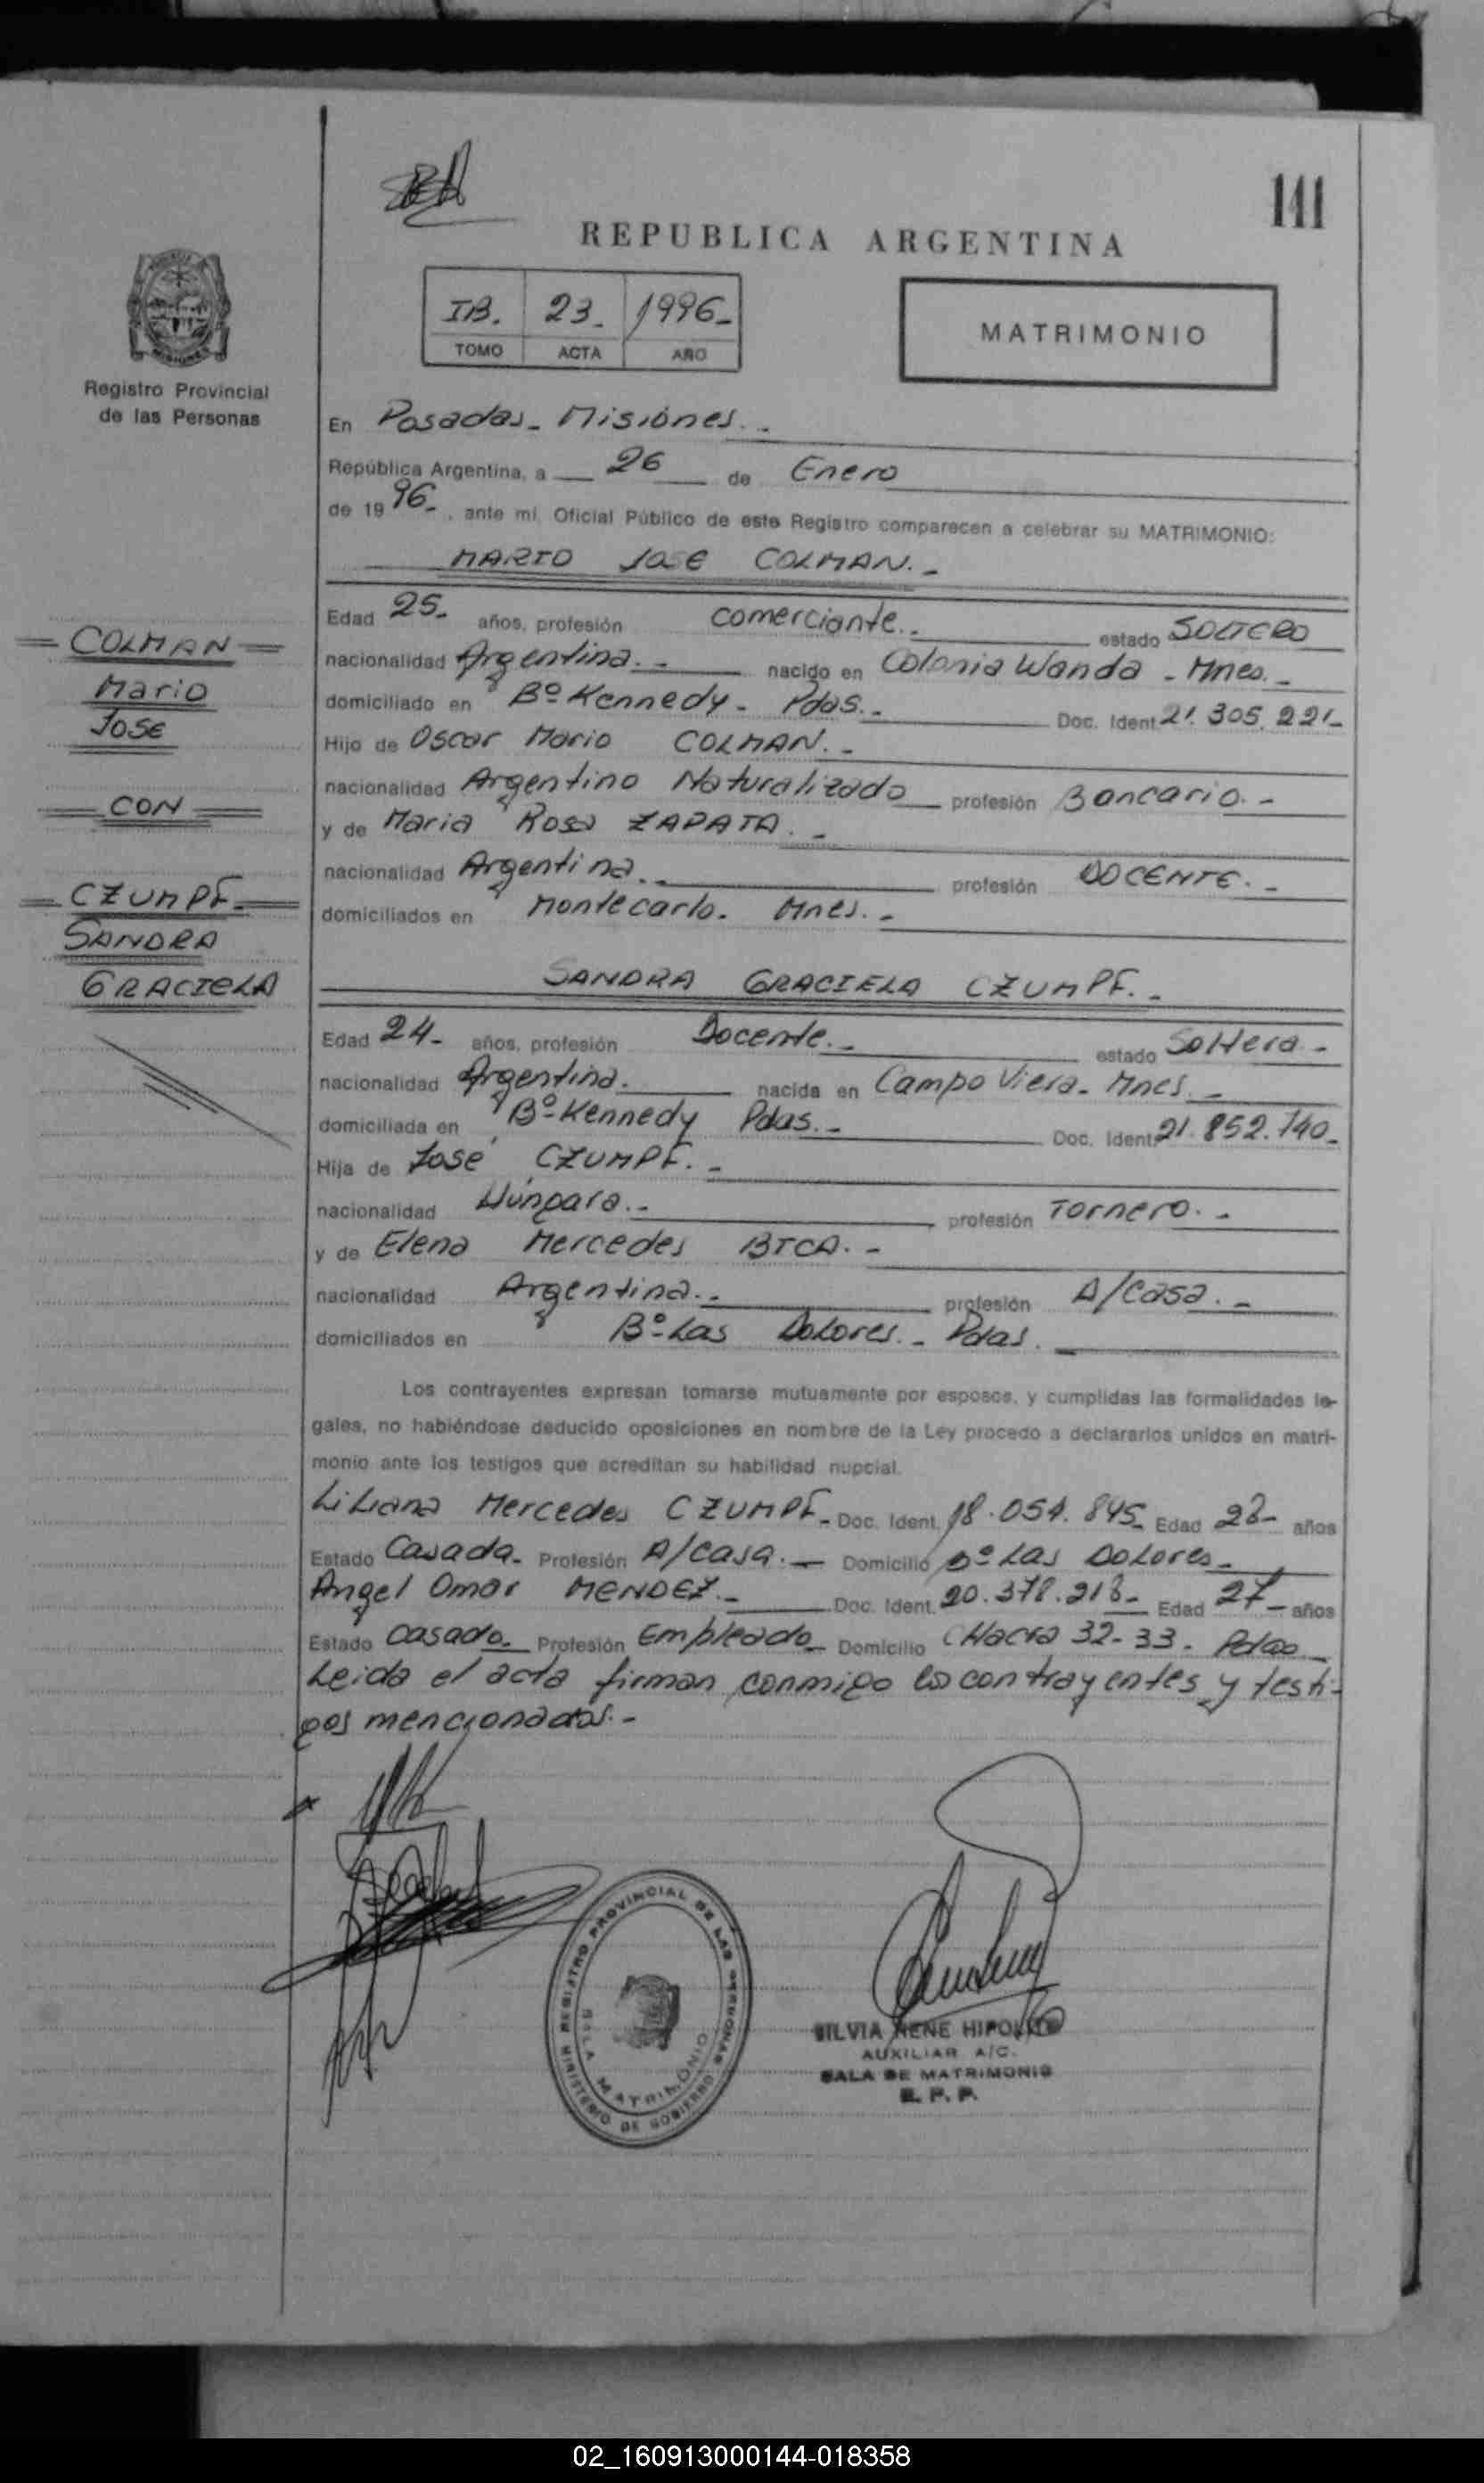 111
REPUBLICA ARGENTINA
IB. 23. 1996-
TOMO ACTA AÑO
MATRIMONIO
Registro Provincial
de las Personas
En Posadas - Misiones.-
República Argentina, a 26 de Enero
de 19 96-, ante mi, Oficial Público de este Registro comparecen a celebrar su MATRIMONIO:
MARIO JOSE COLMAN.-
Edad 25- años, profesión comerciante.- estado SOLTERO
nacionalidad Argentina.- nacido en Colonia Wanda - Mnes.-
domiciliado en Bº Kennedy - Pdas.- Doc. Ident. 21.305.221-
Hijo de Oscar Mario COLMAN.-
nacionalidad Argentino Naturalizado profesión Bancario.-
y de Maria Rosa ZAPATA.-
nacionalidad Argentina.- profesión DOCENTE.-
domiciliados en Montecarlo. Mnes.-
= COLMAN =
Mario
Jose
= CON =
= CZUMPF =
SANDRA
GRACIELA
SANDRA GRACIELA CZUMPF.-
Edad 24- años, profesión Docente.- estado Soltera-
nacionalidad Argentina. nacida en Campo Viera - Mnes.-
domiciliada en Bº Kennedy Pdas.- Doc. Ident. 21.852.740-
Hija de José CZUMPF.-
nacionalidad Húngara.- profesión Tornero.-
y de Elena Mercedes BICA.-
nacionalidad Argentina.- profesión A/casa.-
domiciliados en Bº Las Dolores.- Pdas.
Los contrayentes expresan tomarse mutuamente por esposos, y cumplidas las formalidades le-
gales, no habiéndose deducido oposiciones en nombre de la Ley procedo a declararlos unidos en matri-
monio ante los testigos que acreditan su habilidad nupcial.
Liliana Mercedes CZUMPF- Doc. Ident. 18.054.845- Edad 28- años
Estado Casada- Profesión A/casa.- Domicilio Bº Las Dolores-
Angel Omar MENDEZ.- Doc. Ident. 20.378.218- Edad 27- años
Estado Casado- Profesión Empleado- Domicilio Chacra 32-33. Pdas-
Leida el acta firman conmigo los contrayentes y testi-
gos mencionados.-
REGISTRO PROVINCIAL DE LAS PERSONAS
MINISTERIO DE GOBIERNO
SALA MATRIMONIO
SILVIA RENE HIPOLITO
AUXILIAR A/C.
SALA DE MATRIMONIO
R. P. P.
02_160913000144-018358